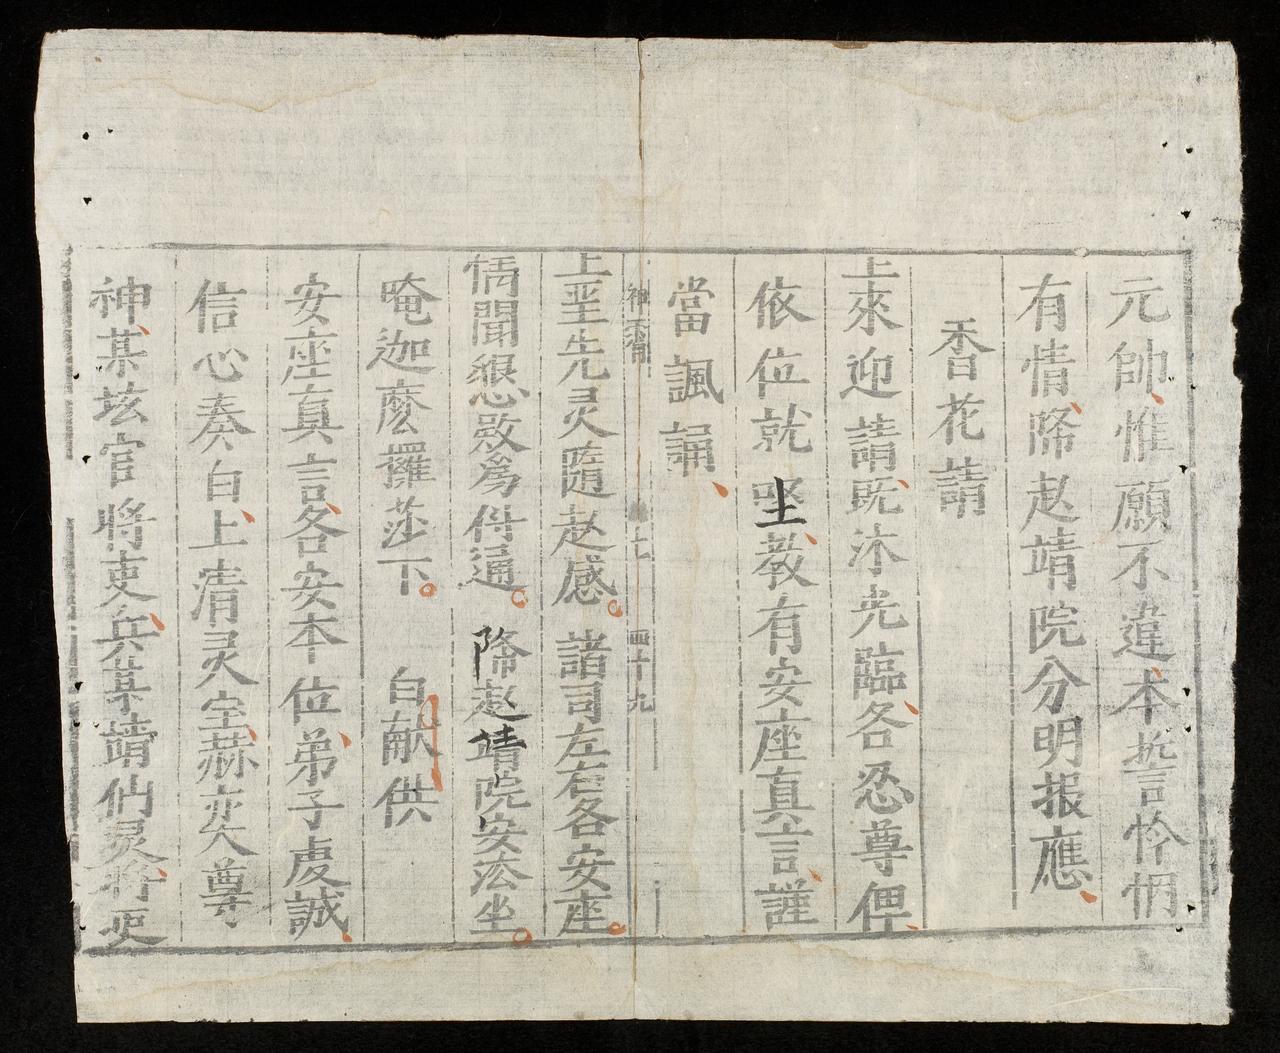 元帥惟願不違本誓怜憫
有情降赴靖院分明報應
香花請
上來迎請既沐光臨各恐尊俾
依位就坚教有安座真言謹
當諷誦
神霄 七 四十九
上聖先灵隨赴感 諸司左右各安座
情聞懇啟為件通 降赴靖院安法坐
唵迦麼攞莎下 白献供
安座真言各安本位弟子虔誠
信心奏白上清灵宝赫奕尊
神某垓官將吏兵某請們灵符更